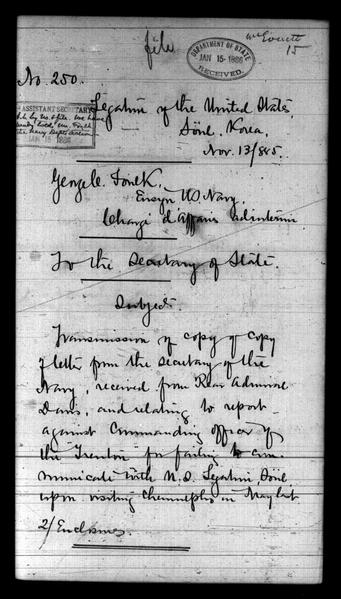 file
Mr Everett
15
DEPARTMENT OF STATE
JAN 15 1886
RECEIVED
No. 250.
ASSISTANT SECRETARY
JAN 15 1886
Legation of the United States,
Söul, Korea,
Nov. 13/885.
George C. Foulk,
Ensign U.S. Navy.
Chargé d'Affaires ad interim
To the Secretary of State.
Subject.
Transmission of copy of copy
of letter from the Secretary of the
Navy, received from Rear Admiral
Davis, and relating to report
against Commanding officer of
the Trenton for failing to com-
municate with U.S. Legation, Söul,
upon visiting Chemulpho in May last
2/Enclosures.